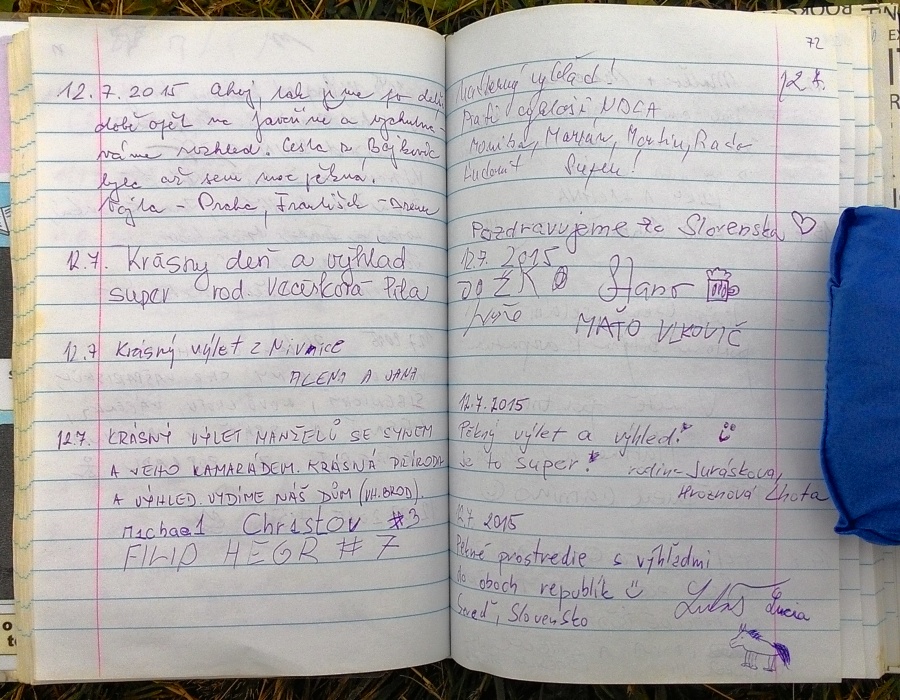 12.7.2015 Ahoj, tak jsme po delší
době opět na Javořině a vychutná-
váme rozhled. Cesta z Bojkovic
byla až sem moc pěkná.
– Praha, František –
12.7. Krásny deň a výhľad
super rod. Píla
12.7 Krásný výlet z Nivnice
ALENA A JANA
12.7. KRÁSNÝ VÝLET MANŽELŮ SE SYNEM
A JEHO KAMARÁDEM. KRÁSNÁ PŘÍRODA
A VÝHLED. VYDÍME NÁŠ DŮM (UH. BROD).
Michael Christov #3
FILIP HEGR #7
72
12.7.
Nádherný výhľad!
Monika, Marián, Martin, Rado
Ľudovít Super!
Pozdravujeme zo Slovenska
12.7.2015
do ŽK Stano
MAŤO VLKOVIČ
12.7.2015
Pěkný výlet a výhled!
Je to super! rodina Juráskova,
Hroznová Lhota
12.7.2015
Pekné prostredie s výhľadmi
do oboch republík
Sereď, Slovensko Lukáš Lucia